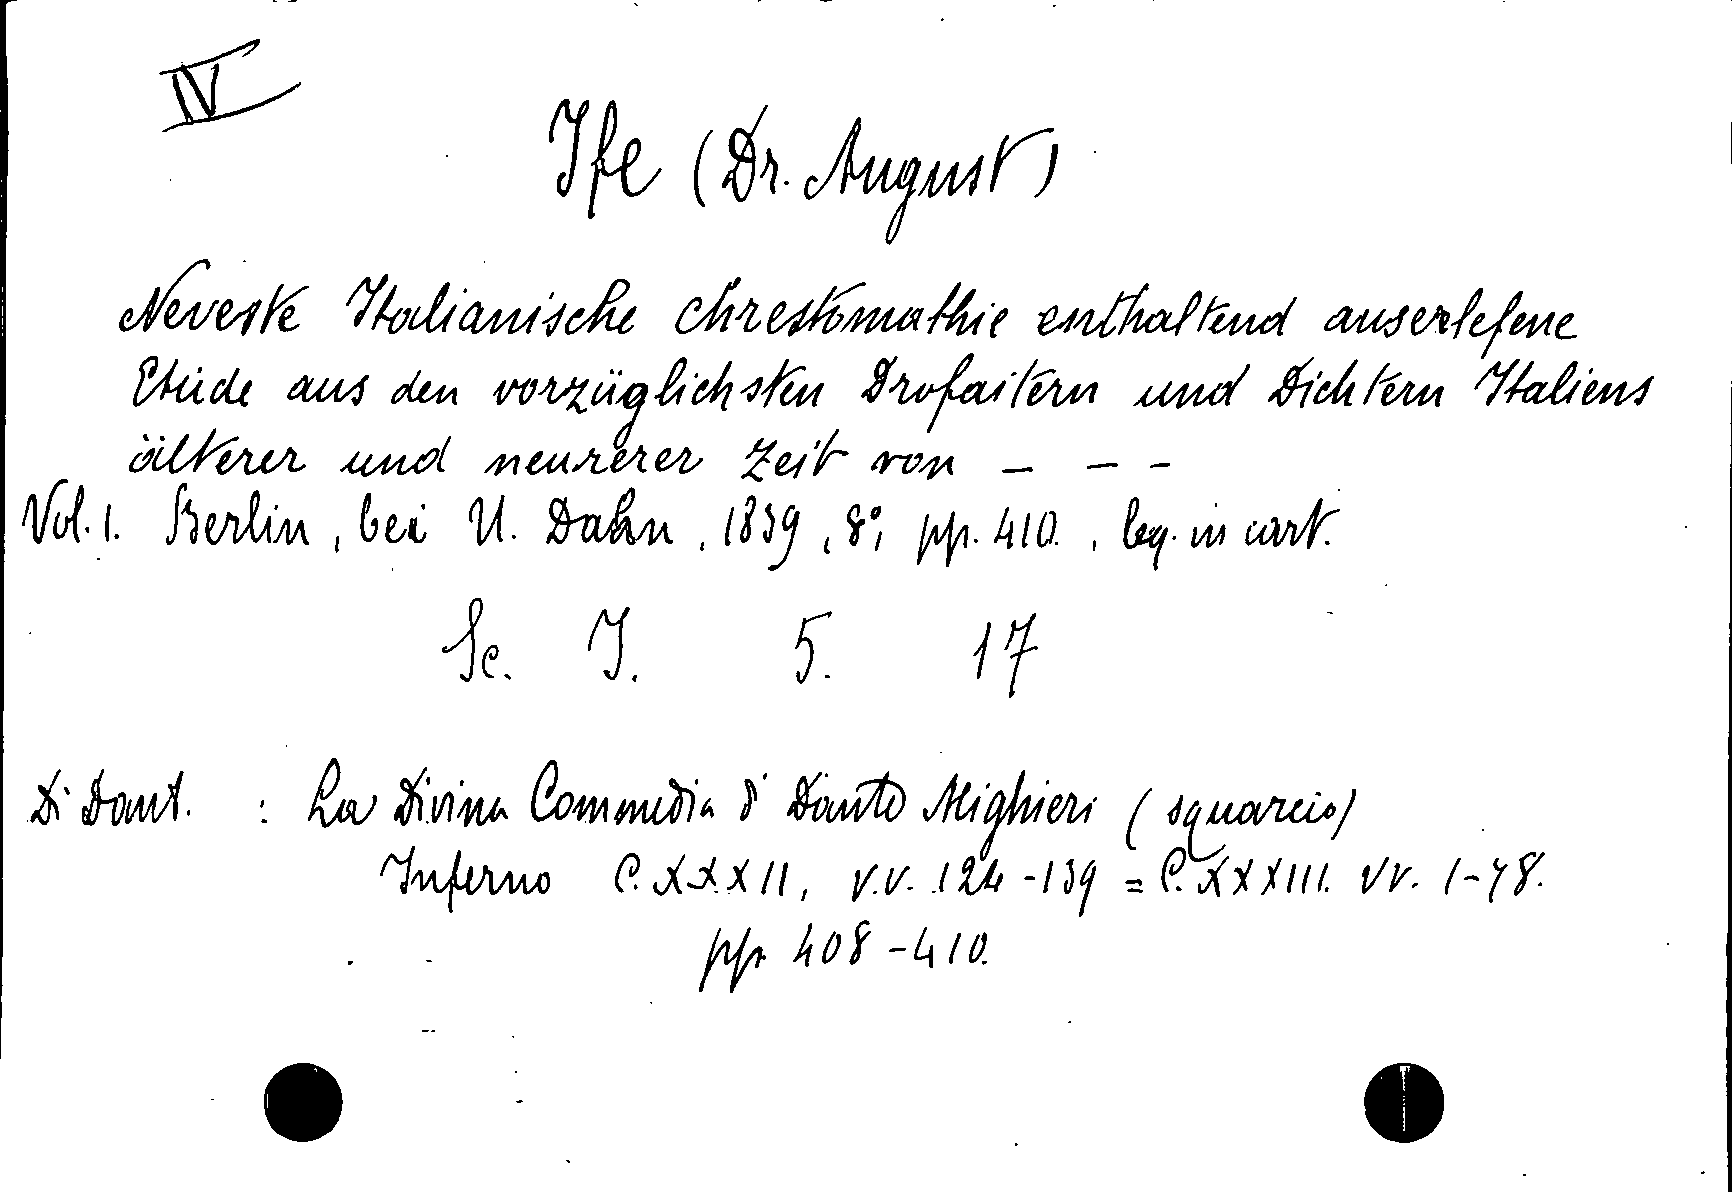 IV
Ife (Dr. August)
Neveste Italianische Chrestomathie enthaltend auserlefene
Etüde aus den vorzüglichsten Drofaitern und Dichtern Italiens
älterer und neurerer Zeit von - - -
Vol. 1. Berlin, bei U. Dahn, 1839, 8°, pp. 410., leg. in cart.
Sc. I. 5. 17
Di Dant. : La Divina Commedia di Dante Alighieri (squarcio)
Inferno C. XXXII, v.v. 124-139 = C. XXXIII. vv. 1-78.
pp. 408-410.